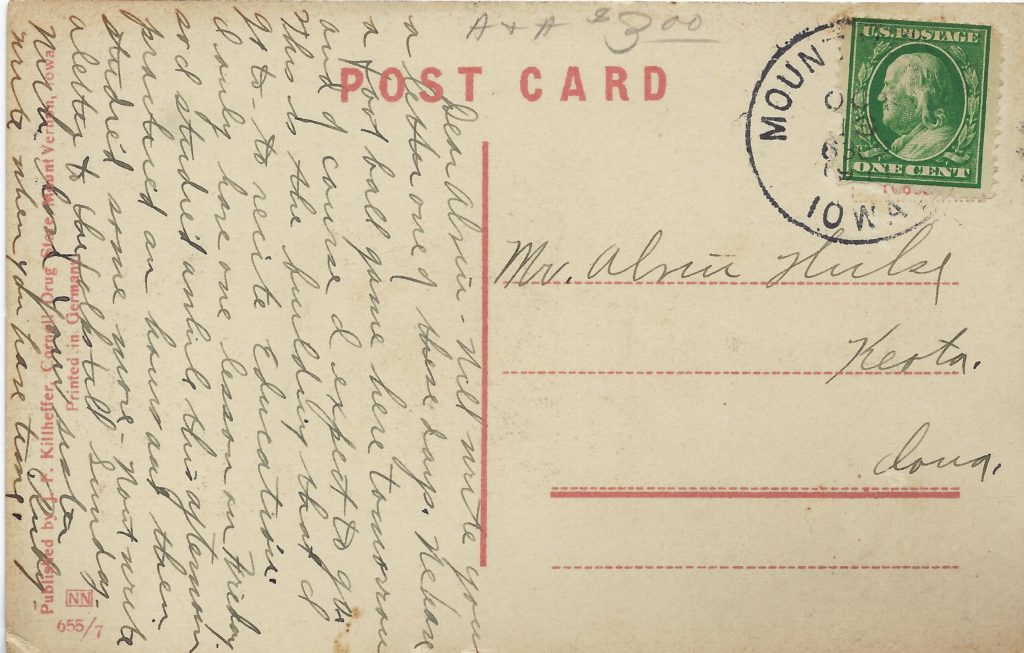 A + A $3.00
POST CARD
MOUNT
IOWA
U.S. POSTAGE
ONE CENT
Dear Alvin - Will write you
a letter one of these days. We have
a foot ball game here tomorrow
and of course I expect to go.
This is the building that I
go to - to recite Education.
I only have one lesson on Friday
so I studied until this afternoon
practiced an hour and then
studied some more - Wont write
a letter to the folks till Sunday.
With love Your sister
write when you have time.
Mr. Alvin Hulse
Keota.
Iowa.
Published by J. F. Killheffer, Cornell Drug Store Mount Vernon, Iowa
Printed in Germany
NN
655/7